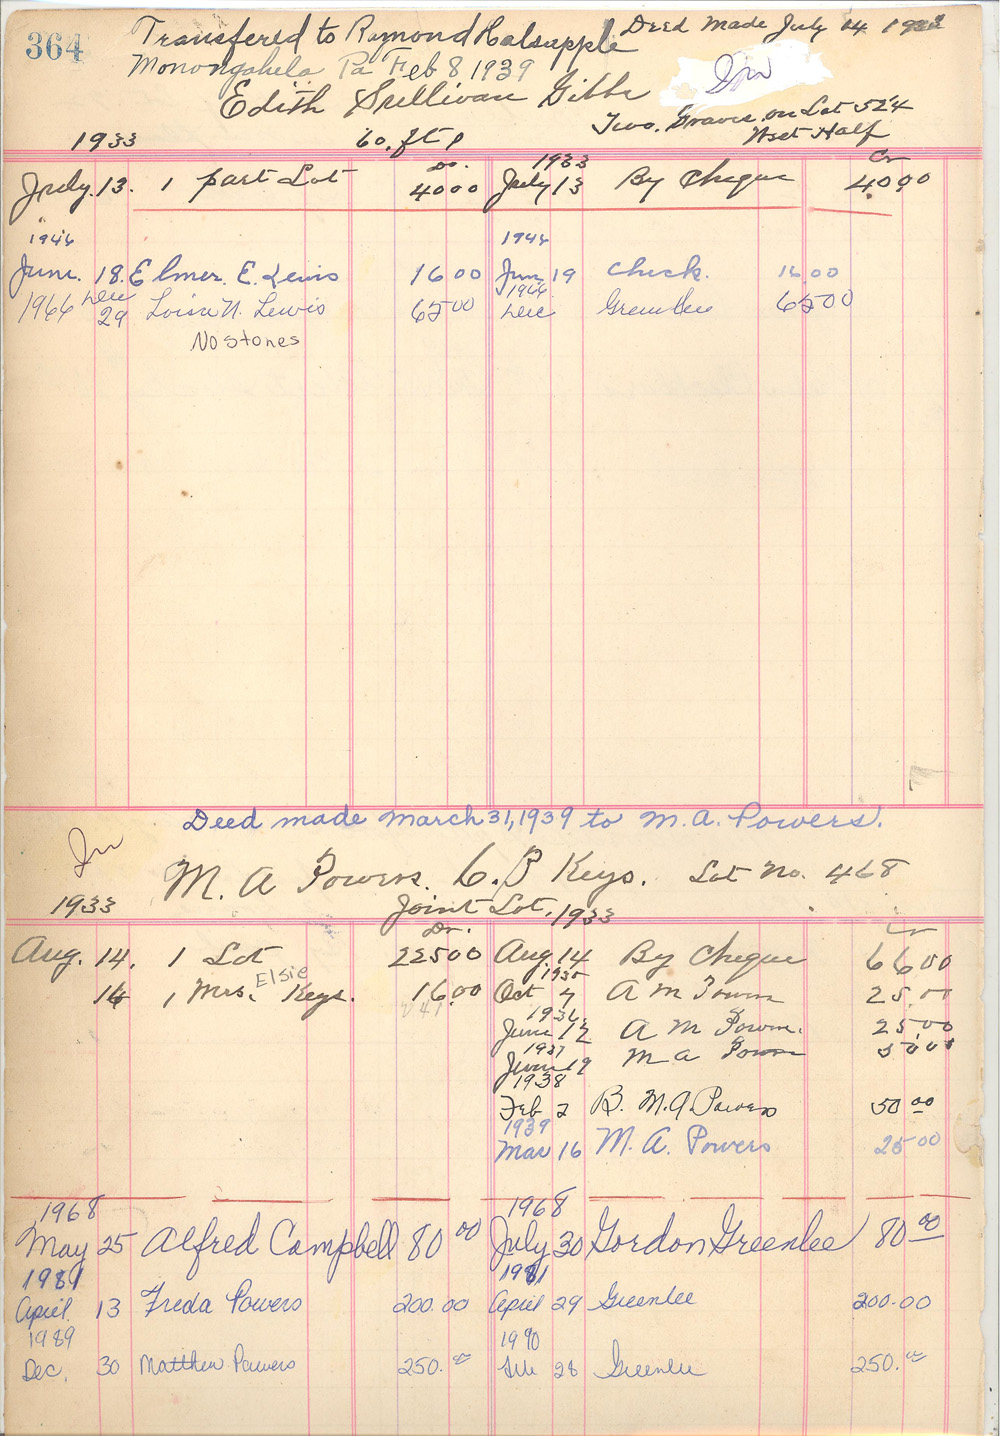 364
Transfered to Raymond Halsapple Deed Made July 14 1933
Monongahela Pa Feb 8 1939
Edith Sullivan Gibbs
Two. Graves on Lot 524
West Half
1933 60. ft
Dr. 1933 Cr
July. 13. 1 part Lot 40 00 July 13 By Cheque 40 00
1946 1946
June. 18. Elmer. E. Lewis 16 00 Jun 19 Check. 16 00
1966 Dec 29 Loisa N. Lewis 65 00 1966 Dec Greenlee 65 00
No stones
Deed made March 31, 1939 to M. A. Powers.
M. A Powers. C. P Keys. Lot No. 468
1933 Joint Lot. 1933
Dr. Cr
Aug. 14. 1 Lot 225 00 Aug. 14 By Cheque 66 00
14 1 Mrs. Elsie Keys. 16.00 1935 Oct 7 A M Powers 25.00
1936 June 12 A M Powers. 25.00
1937 June 19 M A Powers 50 00
1938
Feb 2 B. M. A. Powers 50 00
1939
Mar 16 M. A. Powers 25 00
1968 1968
May 25 Alfred Campbell 80 00 July 30 Gordon Greenlee 80 00
1981 1981
April 13 Freda Powers 200.00 April 29 Greenlee 200.00
1989 1990
Dec. 30 Matthew Powers 250.00 28 Greenlee 250.00